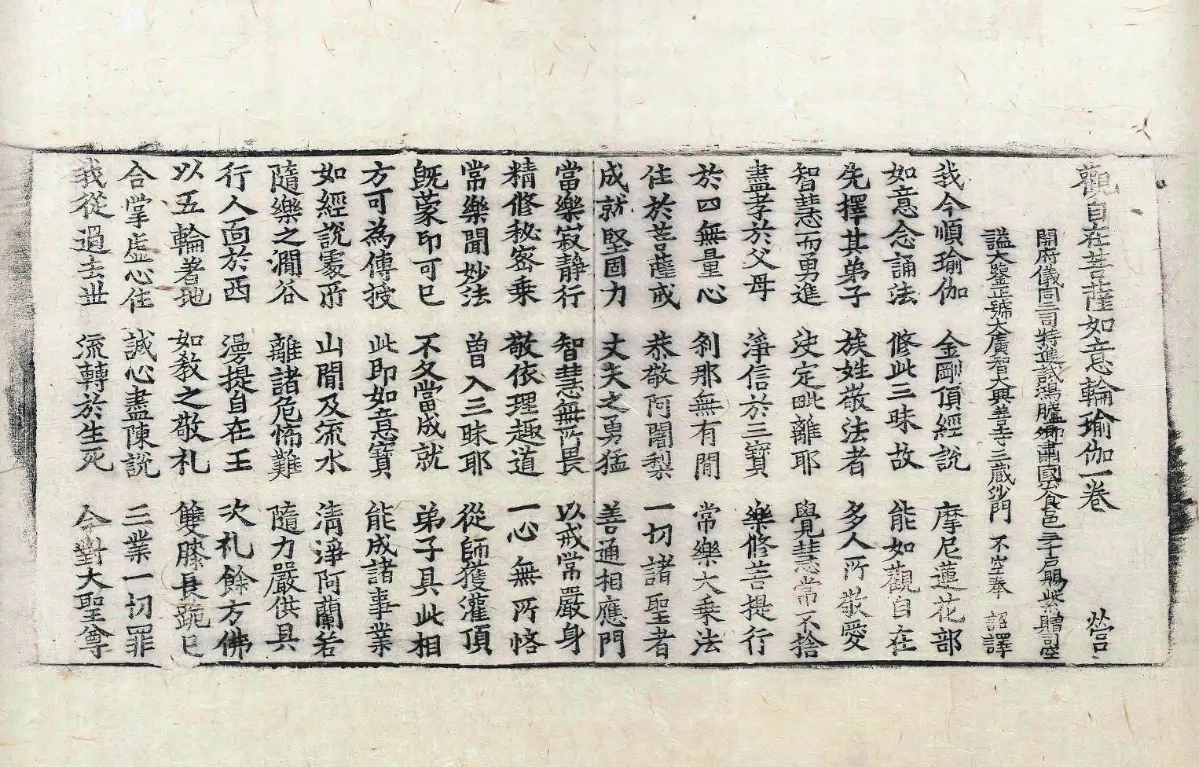 觀自在菩薩如意輪瑜伽一卷 營
開府儀同三司特進試鴻臚卿肅國公食邑三千戶賜紫贈司空
謚大鑒正號大廣智大興善寺三藏沙門 不空奉 詔譯
我今順瑜伽 金剛頂經說 摩尼蓮花部
如意念誦法 修此三昧故 能如觀自在
先擇其弟子 族姓敬法者 多人所敬愛
智慧而勇進 決定毗離耶 覺慧常不捨
盡孝於父母 淨信於三寶 樂修菩提行
於四無量心 剎那無有間 常樂大乘法
住於菩薩戒 恭敬阿闍梨 一切諸聖者
成就堅固力 丈夫之勇猛 善通相應門
當樂寂静行 智慧無所畏 以戒常嚴身
精修秘密乘 敬依理趣道 一心無所悋
常樂聞妙法 曾入三昧耶 從師獲灌頂
旣蒙印可已 不久當成就 弟子具此相
方可為傳授 此即如意寶 能成諸事業
如經說處所 山間及流水 清淨阿蘭若
隨樂之澗谷 離諸危怖難 隨力嚴供具
行人面於西 遍提自在王 次礼餘方佛
以五輪著地 如教之敬礼 雙膝長跪已
合掌虛心住 誠心盡陳說 三業一切罪
我從過去世 流轉於生死 今對大聖尊